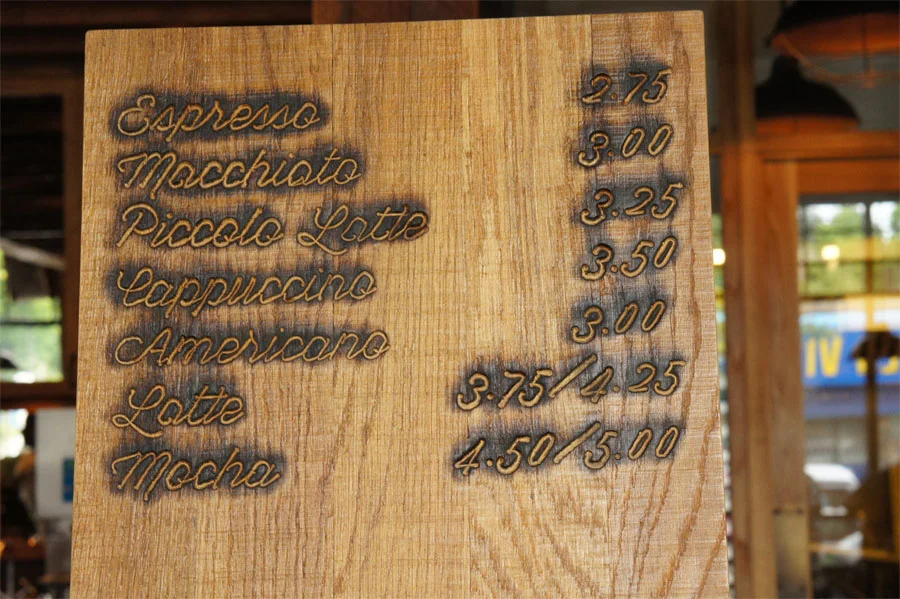 Espresso 2.75
Macchiato 3.00
Piccolo Latte 3.25
Cappuccino 3.50
Americano 3.00
Latte 3.75/4.25
Mocha 4.50/5.00